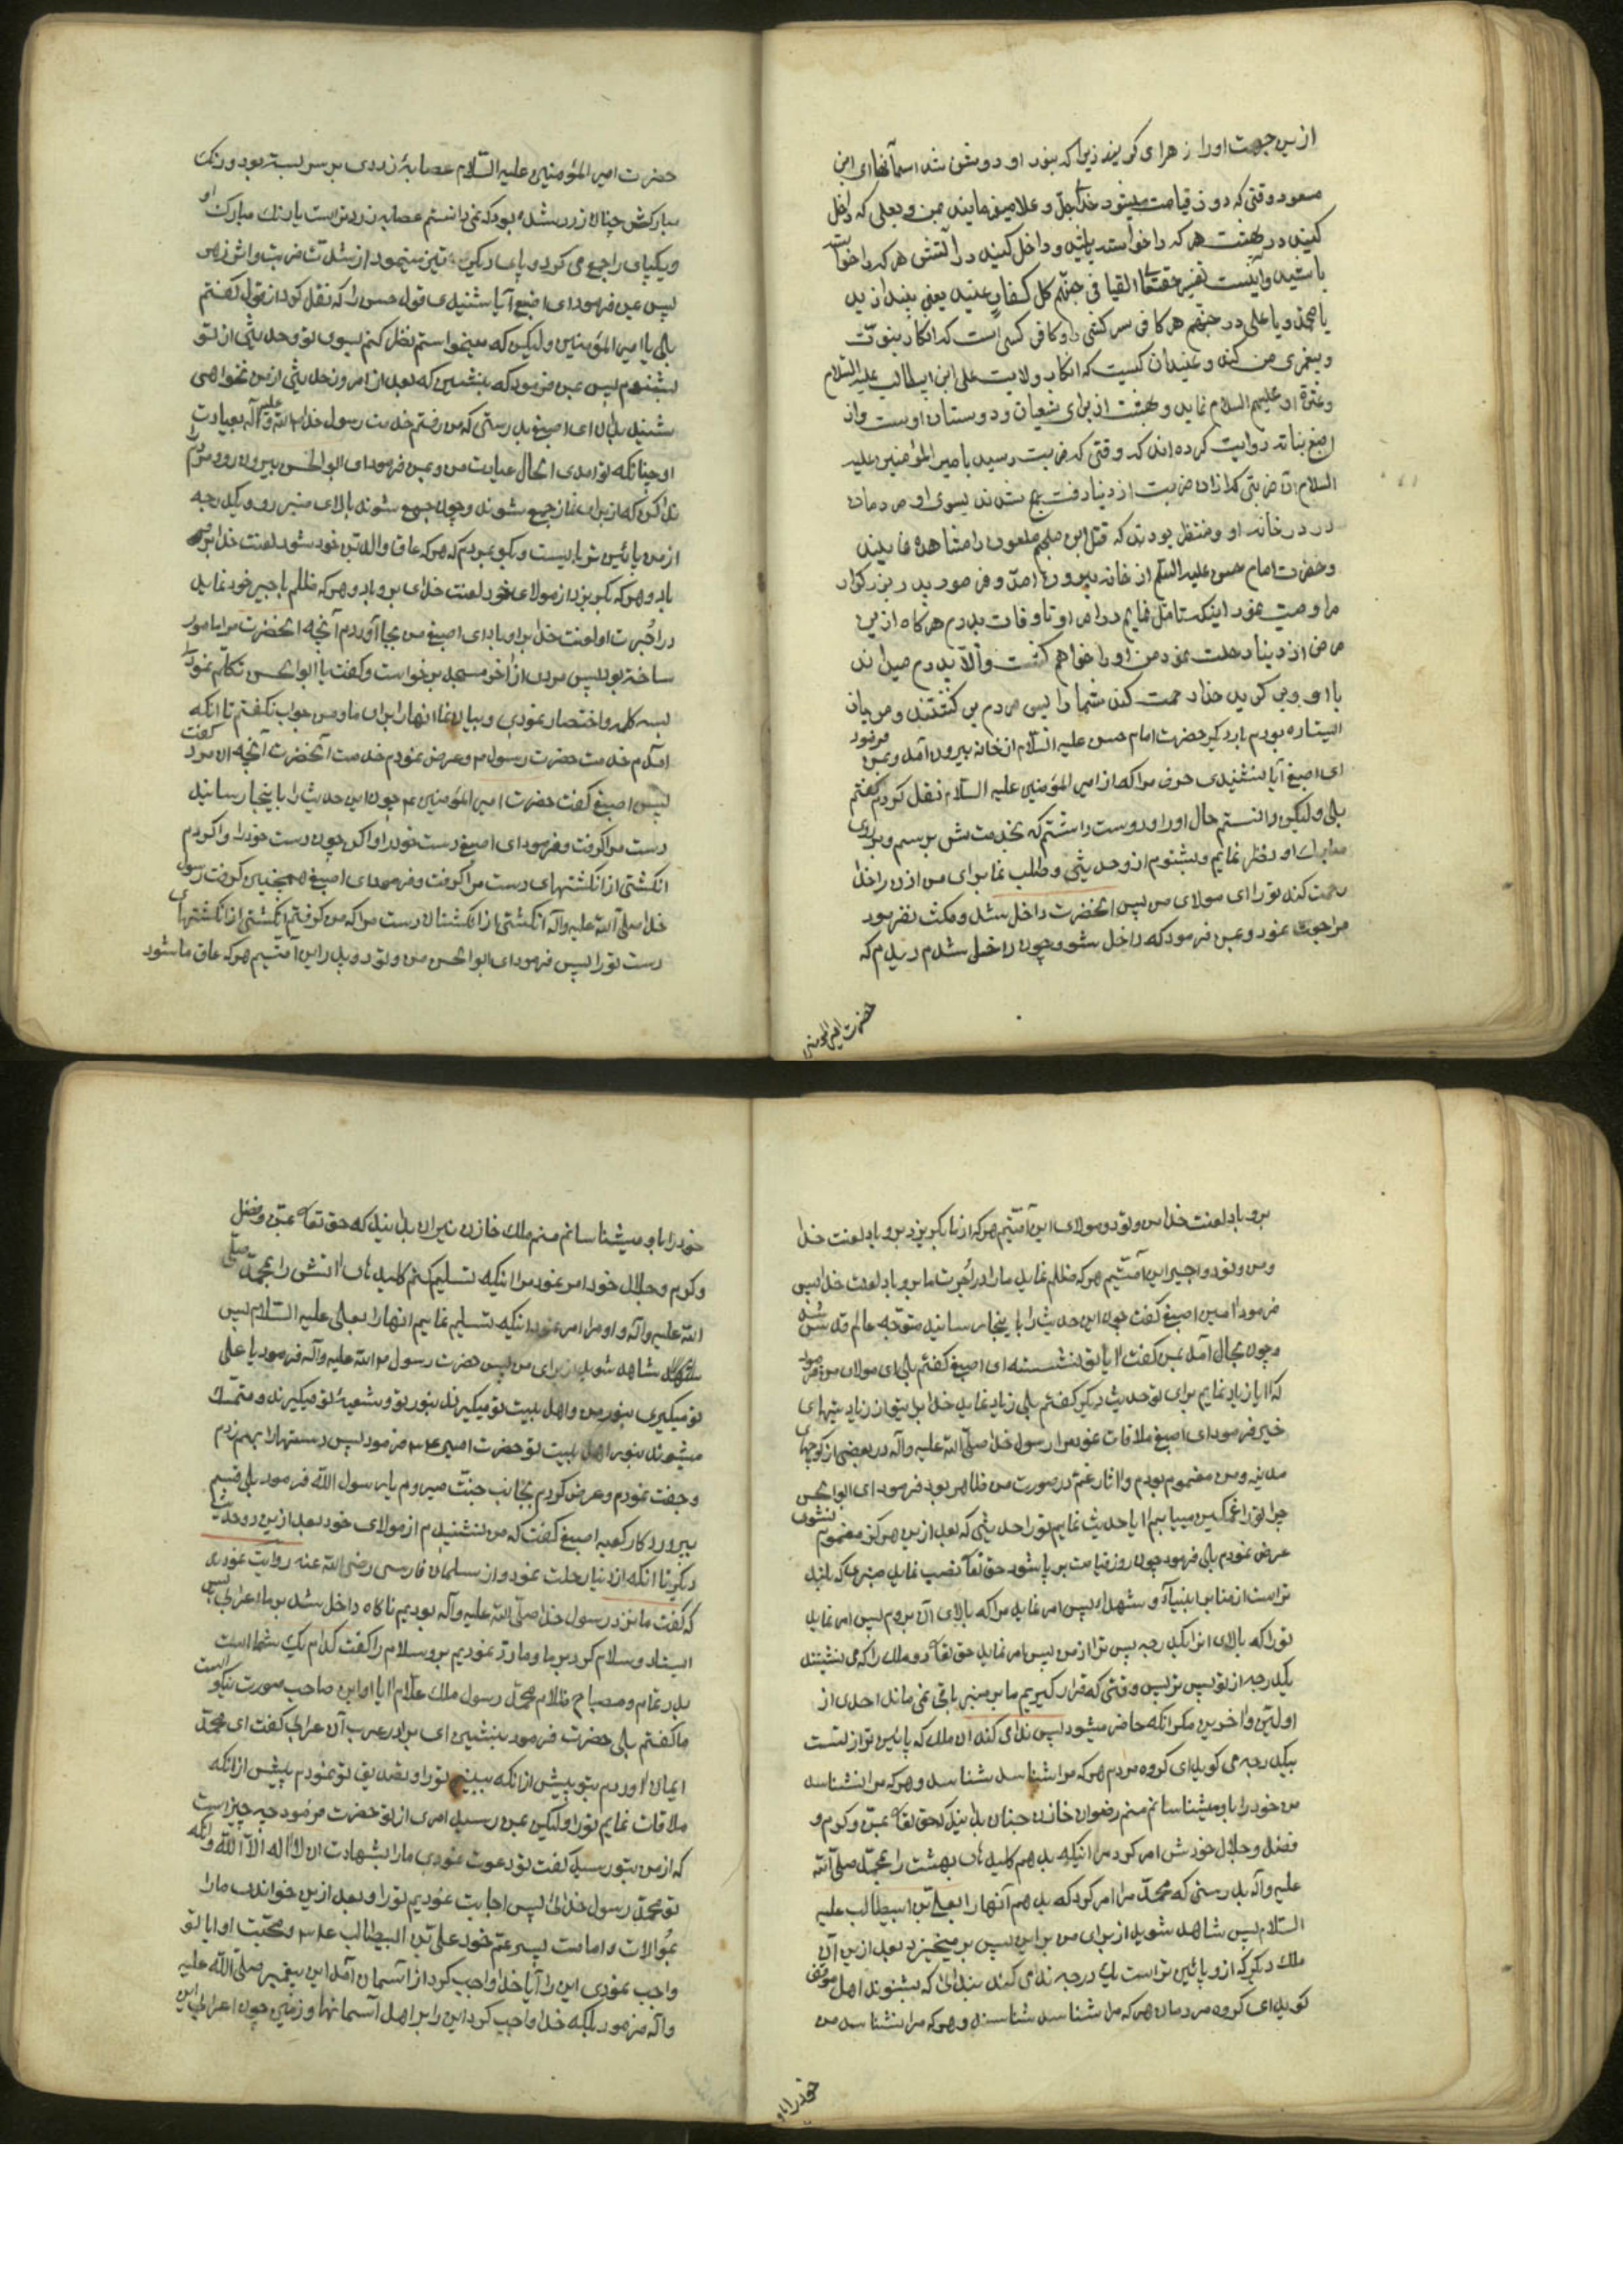 ازین جهت او را زهرا می گویند زیرا که بنور او روشن شد اسمانها ای ابن
مسعود وقتی که روز قیامت میشود خدا عزوجل و علا میفرماید بمن و بعلی که داخل
کنید در بهشت هر که را خواسته باشید و داخل کنید در آتش هر که را خواسته
باشید و اینست تفسیر حقتعالی القیا فی جهنم کل کفار عنید یعنی بیندازید
یا محمد و یا علی در جهنم هر کافر سرکشی را و کافر کسی است که انکار نبوت
و پیغمبری من کند و عنید آن کسیست که انکار ولایت علی ابن ابیطالب علیه السلام
و عترة او علیهم السلام نماید و بهشت از برای شیعیان و دوستان اوست و از
اصبغ بناته روایت کرده اند که وقتی که ضربت رسید بامیر المؤمنین علیه
السلام آن ضربتی که از آن ضربت از دنیا رفت جمع شدند بسوی او مردمان
در در خانه او و منتظر بودند که قتل ابن ملجم ملعون را مشاهده نمایند
و حضرت امام حسن علیه السلام از خانه بیرون آمد و فرمود پدر بزرگوار
مرا وصیت نمود اینکه تامل نمایم در امر او تا وفات پدرم هرگاه ازین
مرض از دنیا رحلت نمود من او را خواهم کشت والا پدرم میداند
با او بروید خدا رحمت کند شما را پس مردم برگشتند و من باز
ایستاده بودم بار دیگر حضرت امام حسن علیه السلام از خانه بیرون آمد و بمن فرمود
ای اصبغ آیا نشنیدی حرف مرا که از امیر المؤمنین علیه السلام نقل کردم گفتم
بلی ولیکن دانستم حال او را و دوست داشتم که بخدمتش برسم و بروی
مبارک او نظر نمایم و بشنوم ازو حدیثی و طلب نما برای من اذن را خدا
رحمت کند تو را ای مولای من پس انحضرت داخل شد و مکث نفرمود
مراجعت نمود و بمن فرمود که داخل شو و چون داخل شدم دیدم که
حضرت امیر المومنین
حضرت امیر المؤمنین علیه السلام عصابۀ زردی بر سر بسته بود و رنک
مبارکش چنان زرد شده بود که نمی دانستم عصابه زردتر است یا رنک مبارک او
و یکپای را جمع می کرد و پای دیگر
پس بمن فرمود ای اصبغ آیا نشنیدی قول حسن را که نقل کرد از قول من گفتم
بلی یا امیر المؤمنین ولیکن که میخواستم نظر کنم بسوی تو و حدیثی از تو
بشنوم پس بمن فرمود که بنشین که بعد از امروز حدیثی از من نخواهی
شنید بدان ای اصبغ بدرستی که من رفتم خدمت رسول خدا صلی الله علیه و آله بعیادت
او چنانکه تو امدی الحال عیادت من و بمن فرمود ای ابوالحسن بیرون رو و مردم را
ندا کن که از برای نماز جمع شوند و چون جمع شوند بالای منبر رو و یکدرجه
از من پائین تر بایست و بگو بمردم که هر که عاق والدین خود شود لعنت خدا برو
باد و هر که بگریزد از مولای خود لعنت خدای برو باد و هر که ظلم باجیر خود نماید
در اجرت او لعنت خدا برو باد ای اصبغ من بجا آوردم آنچه انحضرت مرا مامور
ساخته بود پس مردی از آخر مسجد برخواست و گفت یا ابوالحسن تکلم نمودی
بسه کلمه و اختصار نمودی و بیان نما انها را برای ما و من جواب نگفتم تا انکه
امدم خدمت حضرت رسول م و عرض نمودم خدمت آنحضرت آنچه ان مرد گفت
پس اصبغ گفت حضرت امیر المؤمنین ع چون این حدیث را باینجا رسانید
دست مرا گرفت و فرمود ای اصبغ دست خود را وا کن چون دست خود را وا کردم
انگشتی از انگشتهای دست مرا گرفت و فرمود ای اصبغ همچنین گرفت رسول
خدا صلی الله علیه و آله انگشتی از انگشتان دست مرا که من گرفتم انگشتی از انگشتهای
دست تو را پس فرمود ای ابوالحسن من و تو دو پدر این امتیم هر که عاق ما شود
برو باد لعنت خدا من و تو دو مولای این امتیم هر که از ما بگریزد برو باد لعنت خدا
و من و تو دو اجیر این امتیم هر که ظلم نماید ما را در اجرت ما برو باد لعنت خدا پس
فرمود امین اصبغ گفت چون این حدیث را باینجا رسانید متوجه عالم قدس شد
و چون بحال آمد بمن گفت ایا تو نشسته ای اصبغ گفتم بلی ای مولای من فرمود
که ایا زیاد نمایم برای تو حدیث دیگر گفتم بلی زیاد نماید خدا برتو از زیادتیهای
خیر فرمود ای اصبغ ملاقات نمود مرا رسول خدا صلی الله علیه و آله در بعضی از کوچهای
مدینه و من مغموم بودم و اثار غم در صورت من ظاهر بود فرمود ای ابوالحسن
چرا تو را غمگین میبابم ایا حدیث نمایم تو را حدیثی که بعد ازین هرگز مغموم نشوی
عرض نمودم بلی فرمود چون روز قیامت برپا شود حق تعالی نصب نماید منبری که بلند
تر است از منابر انبیاء و شهدا پس امر نماید مرا که بالای آن بروم پس امر نماید
تو را که بالای انرا یکدرجه پس تر از من پس امر نماید حق تعالی دو ملک را که می نشینند
یکدرجه از تو پس تر پس وقتی که قرار گیریم ما بر منبر باقی نمی ماند احدی از
اولین و اخرین مکر انکه حاضر میشود پس ندای کند ان ملک که پائین تر از تست
بیکدرجه می گوید ای گروه مردم هر که مرا شناسد شناسد و هر که مرا نشناسد
من خود را باو میشناسانم منم رضوان خازن جنان بدانید که حق تعالی بمن و کرم و
فضل و جلال خودش امر کرد مرا اینکه بدهم کلیدهای بهشت را بمحمد صلی الله
علیه و آله بدرستی که محمد مرا امر کرد که بدهم آنها را بعلی بن ابیطالب علیه
السلام پس شاهد شوید از برای من بر این پس بر میخیزد بعد ازین آن
ملک دیگر که ازو پائین تر است بیک درجه ندای کند بندائی که بشنوند اهل موقف
گوید ای گروه مردمان هر که مرا شناسد شناسد و هر که مرا نشناسد من
خود را باو
خود را باو میشناسانم منم ملک خازن نیران بدانید که حق تعالی بمن و فضل
و کرم و جلال خود امر نمود مرا اینکه تسلیم کنم کلیدهای اتش را بمحمد صلی
الله علیه و آله و او مرا امر نمود اینکه تسلیم نمایم انها را بعلی علیه السلام پس
شاهد شوید از برای من پس حضرت رسول م الله علیه و آله فرمود یا علی
تو میگیری بنور من و اهل بیت تو میگیرند بنور تو و شیعۀ تو میگیرند و متمسک
میشوند بنور اهل بیت تو حضرت امیر ع فرمود پس دستها را بهم زدم
و جفت نمودم و عرض کردم بجانب جنت میروم یا رسول الله فرمود بلی قسم
بپروردگار کعبه اصبغ گفت که من نشنیدم از مولای خود بعد ازین دو حدیث
دیگر تا انکه از دنیا رحلت نمود و از سلمان فارسی رضی الله عنه روایت نموده
که گفت ما نزد رسول خدا صلی الله علیه و آله بودیم ناگاه داخل شد بر ما اعرابی پس
ایستاد و سلام کرد بر ما و ما رد نمودیم برو سلام را گفت کدام یک شما است
بدر تمام و مصباح ظلام محمد رسول ملک علام ایا او این صاحب صورت نیکو است
ما گفتیم بلی حضرت فرمود بنشین ای برادر عرب آن عرابی گفت ای محمد
ایمان اوردم بتو پیش از انکه ببینم تو را و تصدیق تو نمودم پیش از انکه
ملاقات نمایم تو را ولیکن بمن رسید امری از تو حضرت فرمود چه چیز است
که از من بتو رسید گفت تو دعوت نمودی ما را بشهادت ان لا اله الا الله و انکه
تو محمد رسول خدائی پس اجابت نمودیم تو را و بعد ازین خواندی ما را
بموالات و امامت پسر عم خود علی بن ابیطالب ع و محبت او ایا تو
واجب نمودی این را آیا خدا واجب کرد از آسمان آمد این پیغمبر صلی الله علیه
و آله فرمود بلکه خدا واجب کرد این را بر اهل آسمانها و زمین چون اعرابی این